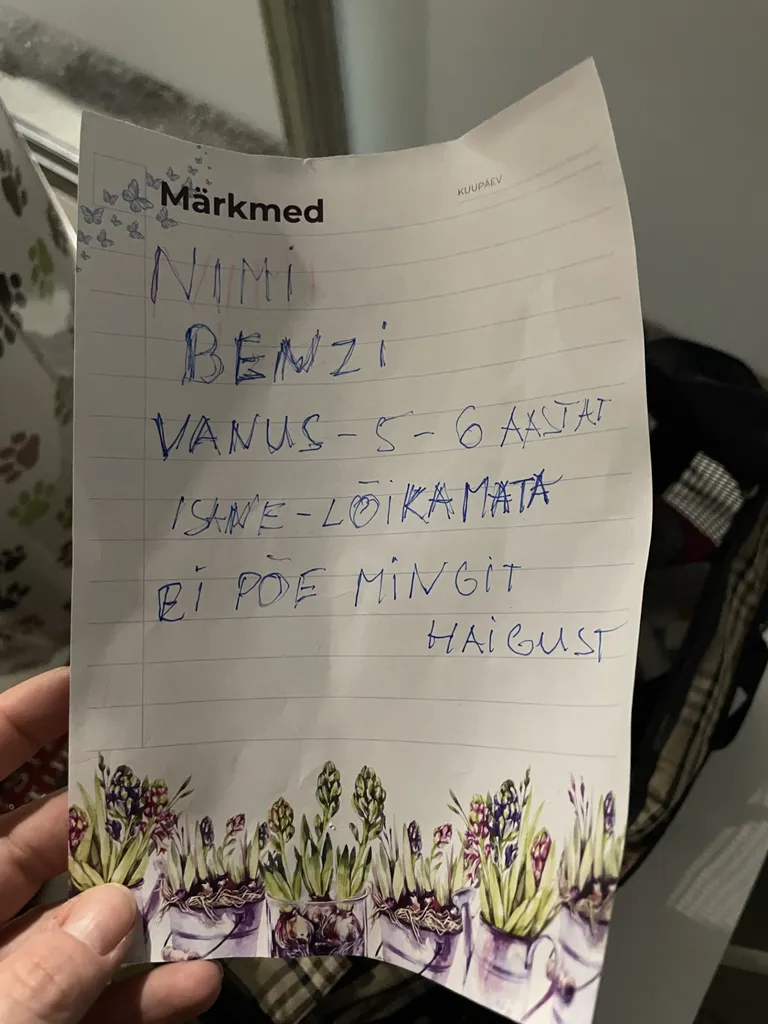 Märkmed
KUUPÄEV
NIMI
BENZI
VANUS - 5 - 6 AASTAT
ISANE - LÕIKAMATA
EI PÕE MINGIT
HAIGUST